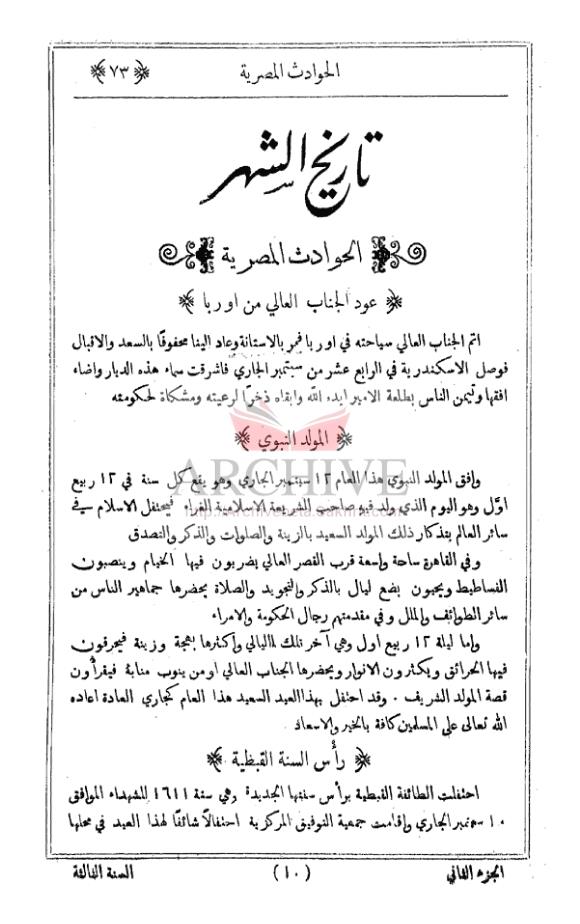 الحوادث المصرية
﴿٧٣﴾
تاريخ الشهر
الحوادث المصرية
﴿ عود الجناب العالي من اوربا ﴾
اتم الجناب العالي سياحته في اوربا فمر بالاستانة وعاد الينا محفوفًا بالسعد والاقبال
فوصل الاسكندرية في الرابع عشر من سبتمبر الجاري فاشرقت سماء هذه الديار واضاء
افقها وتيمن الناس بطلعة الامير ايده الله وابقاه ذخرًا لرعيته ومشكاة لحكومته
﴿ المولد النبوي ﴾
ARCHIVE
وافق المولد النبوي هذا العام ١٢ سبتمبر الجاري وهو يقع كل سنة في ١٢ ربيع
اوّل وهو اليوم الذي ولد فيه صاحب الشريعة الاسلامية الغراء فيحتفل الاسلام في
سائر العالم بتذكار ذلك المولد السعيد بالزينة والصلوات والذكر والتصدق
وفي القاهرة ساحة واسعة قرب القصر العالي يضربون فيها الخيام وينصبون
الفساطيط ويحيون بضع ليال بالذكر والتجويد والصلاة يحضرها جماهير الناس من
سائر الطوائف والملل وفي مقدمتهم رجال الحكومة والامراء
واما ليلة ١٢ ربيع اول وهي آخر تلك الليالي واكثرها بهجة وزينة فيحرقون
فيها الحرائق ويكثرون الانوار ويحضرها الجناب العالي او من ينوب منابة فيقرأون
قصة المولد الشريف . وقد احتفل بهذا العيد السعيد هذا العام كجاري العادة اعاده
الله تعالى على المسلمين كافة بالخير والاسعاد
﴿ رأس السنة القبطية ﴾
احتفلت الطائفة القبطية برأس سنتها الجديدة وهي سنة ١٦١١ للشهداء الموافق
١٠ سبتمبر الجاري واقامت جمعية التوفيق المركزية احتفالًا شائقًا لهذا العيد في محلها
الجزء الثاني
(١٠)
السنة الثالثة